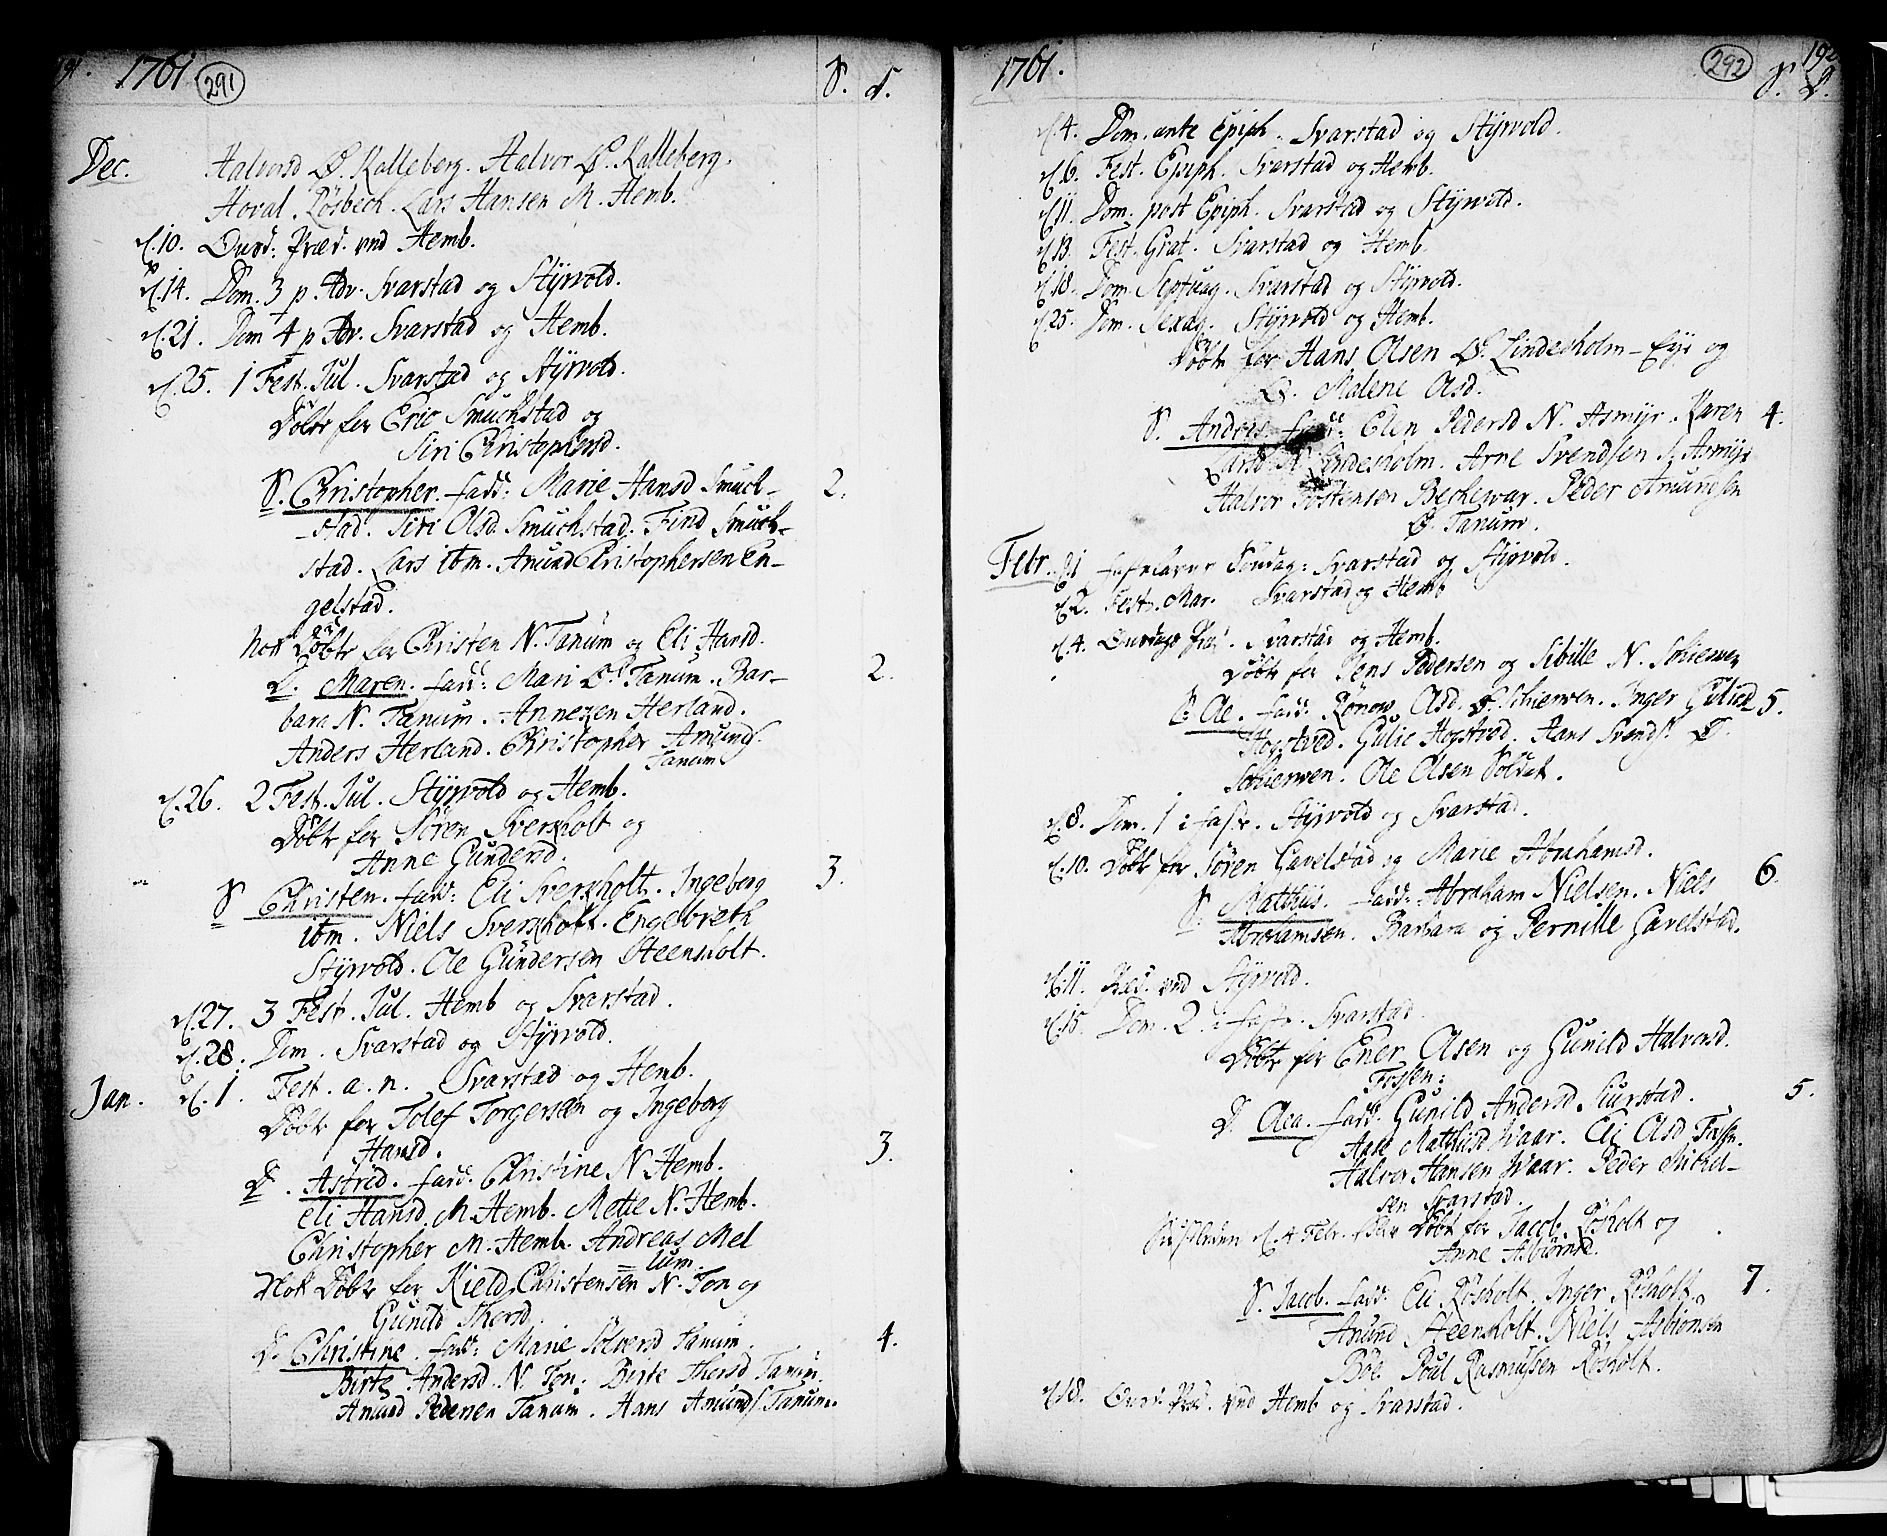 191. 1761 291 S. D.
Dec. Halvorsd Ø. Kalleberg. Halvor Ø. Kalleberg.
Hoval. Røsbech. Lars Hansen M. Hemb.
d. 10. Onsd: Præd. ved Hemb.
d. 14. Dom. 3 p. Adv. Svarstad og Styrvold.
d. 21. Dom 4 p Adv. Svarstad og Hemb.
d. 25. 1 Fest. Jul. Svarstad og Styrvold.
Døbt for Eric Smuchstad og
Siri Christophersd.
S. Christopher. fadd: Marie Hansd Smuch- 2.
-stad. Siri Olsd Smuchstad. Find Smuch-
stad. Lars ibm. Anund Christophersen En-
gelstad.
Nok Døbt for Christen N. Tanum og Eli Hansd.
D. Maren. fadd: Mari Ø. Tanum. Bar- 2.
bara N. Tanum. Anne Herland.
Anders Herland. Christopher Amunds.
Tanum
d. 26. 2 Fest. Jul. Styrvold og Hemb.
Døbt for Søren Sverkholt og
Anne Gundersd.
S Christen. fadd: Eli Sverkholt. Ingeberg 3.
ibm. Niels Sverkholt. Engelbreth
Styrvold. Ole Gundersen Steensholt.
d. 27. 3 Fest. Jul. Hemb og Svarstad.
d. 28. Dom. Svarstad og Styrvold.
Jan. d. 1. Fest. a. n. Svarstad og Hemb.
Døbt for Tolef Torgersen og Ingeberg
Hansd.
D. Astrid. fadd: Christine N Hemb. 3.
Eli Hansd. M. Hemb. Mette N. Hemb.
Christopher M. Hemb. Andreas Mel
=lum.
Nok Døbt for Kield Christensen N. Ton og
Gunild Thorsd.
D. Christine. fadd: Marie Solversd Tanum. 4.
Birte Andersd. N. Ton. Birte Thorsd Tanum.
Anund Pedersen Tanum. Hans Amunds. Tanum.
1761. 292 192 S. D.
d. 4. Dom. ante Epiph. Svarstad og Styrvold.
d. 6. Fest. Epiph. Svarstad og Hemb.
d. 11. Dom. post Epiph. Svarstad og Styrvold.
d. 13. Fest. Grat. Svarstad og Hemb.
d. 18. Dom. Septuag. Svarstad og Styrvold.
d. 25. Dom. Sexag. Styrvold og Hemb.
Døbt for Hans Olsen Ø. Lindesholm og
Malene Olsd.
S. Anders. fadd: Elen Pedersd N. Asmyr. Karen 4.
Larsd N. Lindesholm. Arne Svendsen Asmyr
Halvor Tostensen Bechewar. Peder Amundsen
Ø. Tanum.
Febr. d. 1 fastelavns Søndag: Svarstad og Styrvold.
d. 2. Fest. Mar. Svarstad og Hemb
d. 4. Onsdags Præd. Svarstad og Hemb.
Døbt for Jens Pedersen og Sibille N. Schierven
S. Ole. fadd: Rønow Olsd. Ø. Schierven. Inger Guliisd 5.
Hogstved. Gulic Hogstvod. Hans Svends. Ø.
Schierwen. Ole Olsen Soldat.
d. 8. Dom. 1 i faste. Styrvold og Svarstad.
d. 10. Døbt for Søren Gavelstad og Marie Abrahamsd.
S. Matthis. fadd: Abraham Nielsen. Niels 6.
Abrahamsen. Barbara og Pernille Gavelstad.
d. 11. Præd. ved Styrvold.
d. 15. Dom. 2. i faste. Svarstad.
Døbt for Ener Olsen og Gunild Halvorsd.
Fossen:
D. Olea. fadd: Gunild Andersd Suurstad. 5.
Aase Matthisd Waar. Eli Olsd Fossen.
Halvor Hansen Waar. Peder Michel-
sen Svarstad.
d. 4 Febr. blev Døbt for Jacob Røsholt og
Anne Asbiørnsd.
S. Jacob. fadd: Eli Røsholt. Inger Røsholt. 7.
Anund Steensholt. Niels Asbiønsen
Bøe. Poul Rasmussen Røsholt.
d. 18. Onsd: Præd. ved Hemb og Svarstad.